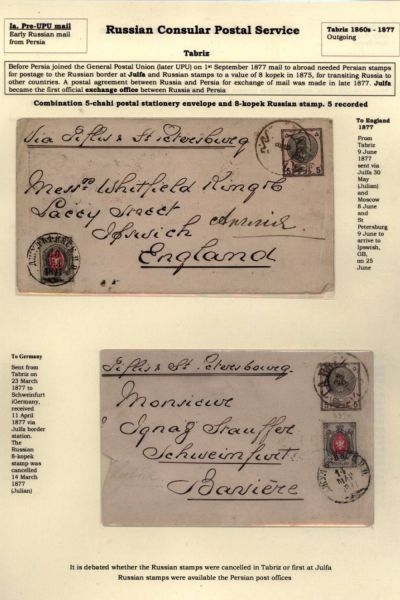 Ia. Pre-UPU mail
Early Russian mail
from Persia
Russian Consular Postal Service
Tabriz 1860s - 1877
Outgoing
Tabriz
Before Persia joined the General Postal Union (later UPU) on 1st September 1877 mail to abroad needed Persian stamps
for postage to the Russian border at Julfa and Russian stamps to a value of 8 kopek in 1875, for transiting Russia to
other countries. A postal agreement between Russia and Persia for exchange of mail was made in late 1877. Julfa
became the first official exchange office between Russia and Persia
Combination 5-chahi postal stationery envelope and 8-kopek Russian stamp. 5 recorded
Via Tiflis & St Petersbourg
Messrs Whitfield King & Co
Lacey Street
Ipswich
England
To England
1877
From
Tabriz
9 June
1877
sent via
Julfa 30
May
(Julian)
and
Moscow
8 June
and
St
Petersburg
9 June to
arrive to
Ipswish,
GB,
on 25
June
To Germany
Sent from
Tabriz on
23 March
1877 to
Schweinfurt
iGermany,
received
11 April
1877 via
Julfa border
station.
The
Russian
8-kopek
stamp was
cancelled
14 March
1877
(Julian)
Tiflis & St. Petersbourg.
Monsieur
Ignaz Stauffer
Schweinfurt
Bavière
It is debated whether the Russian stamps were cancelled in Tabriz or first at Julfa
Russian stamps were available the Persian post offices